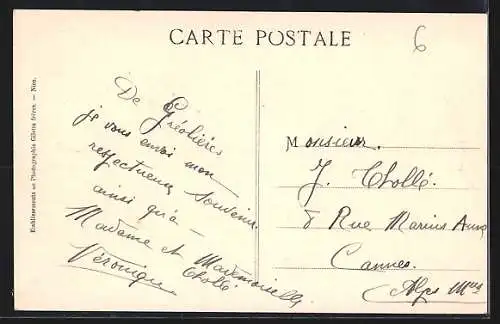 CARTE POSTALE
6
De Gréolières
je vous envoi mon
respectueux souvenir
ainsi qu'a
Madame et Mademoiselle
Chollé
Véronique
Monsieur
J. Chollé.
8 Rue Marius Aune
Cannes.
Alpes Mmes
Etablissements de Photographie Giletta frères. — Nice.